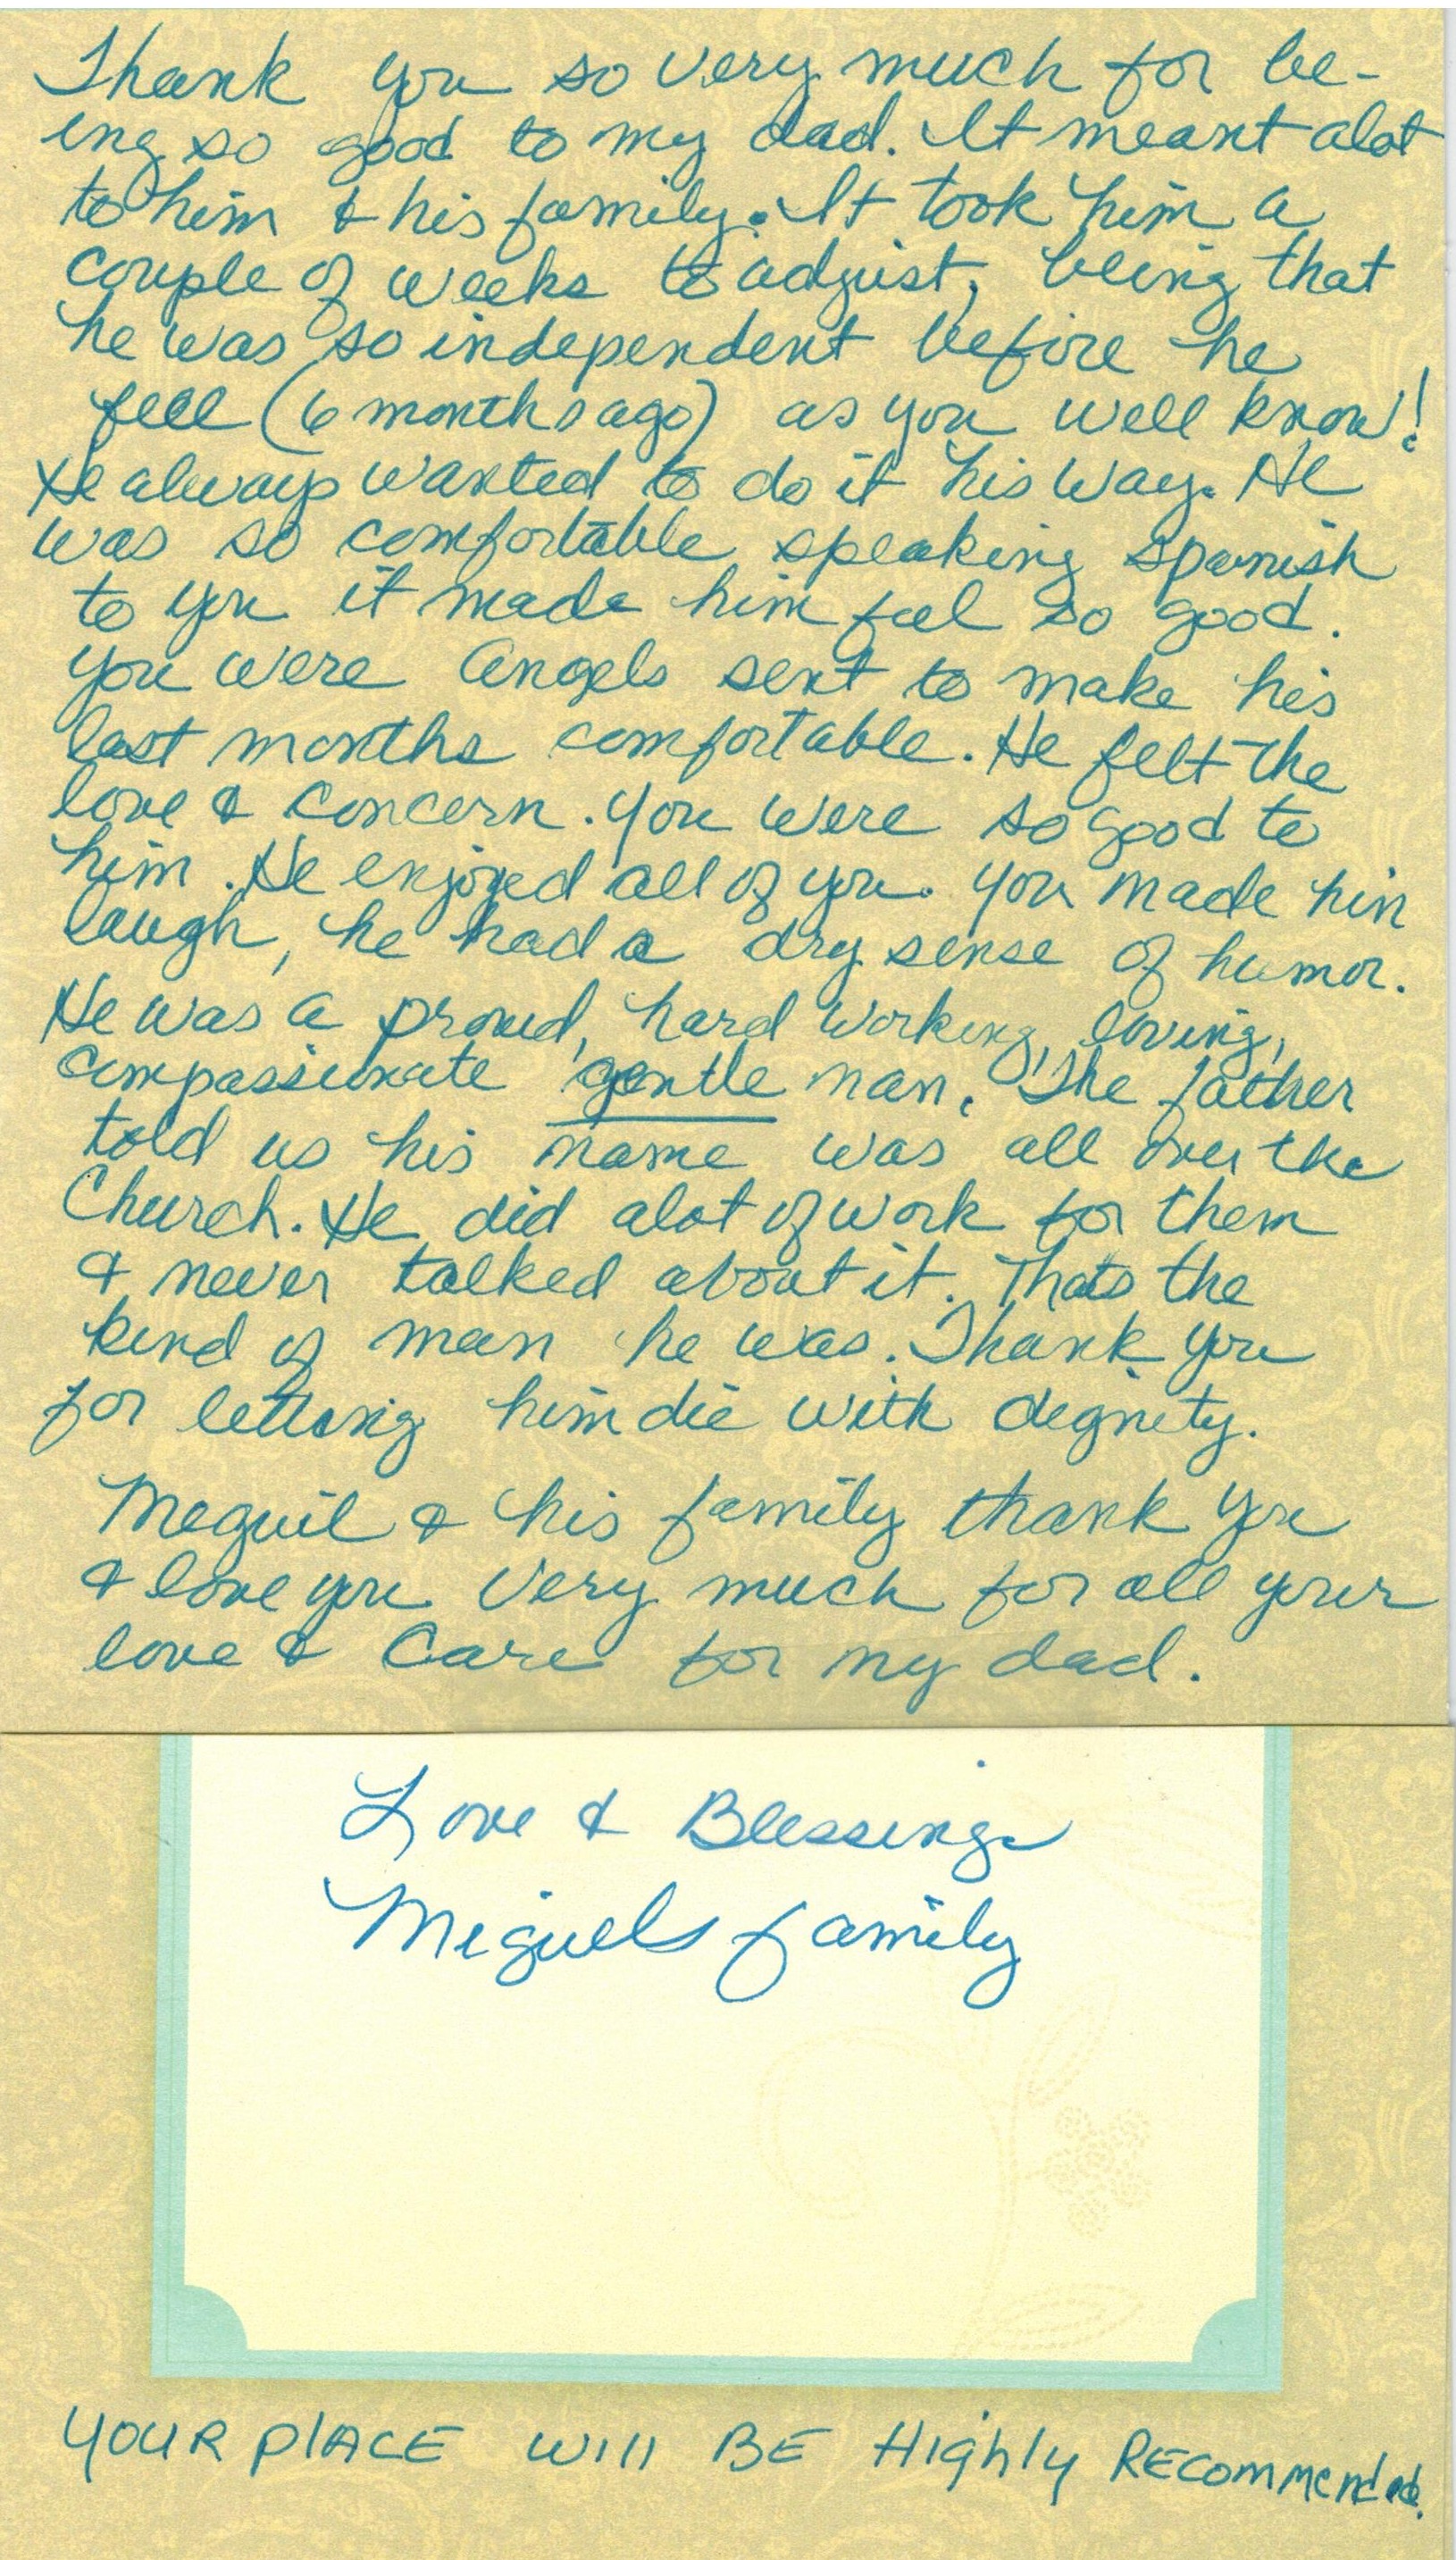 Thank you so very much for be-
ing so good to my dad. It meant alot
to him & his family. It took him a
couple of weeks to adjust, being that
he was so independent before he
fell (6 months ago) as you well know!
He always wanted to do it his way. He
was so comfortable speaking spanish
to you it made him feel so good.
You were Angels sent to make his
last months comfortable. He felt the
love & concern. You were so good to
him. He enjoyed all of you. You made him
laugh, he had a dry sense of humor.
He was a proud, hard working, loving,
compassionate gentle man. The father
told us his name was all over the
Church. He did alot of work for them
& never talked about it. Thats the
kind of man he was. Thank you
for letting him die with dignity.
Meguil & his family thank you
& love you very much for all your
love & Care for my dad.
Love & Blessings
Miguels family
YOUR PLACE WILL BE HigHly RECommended.